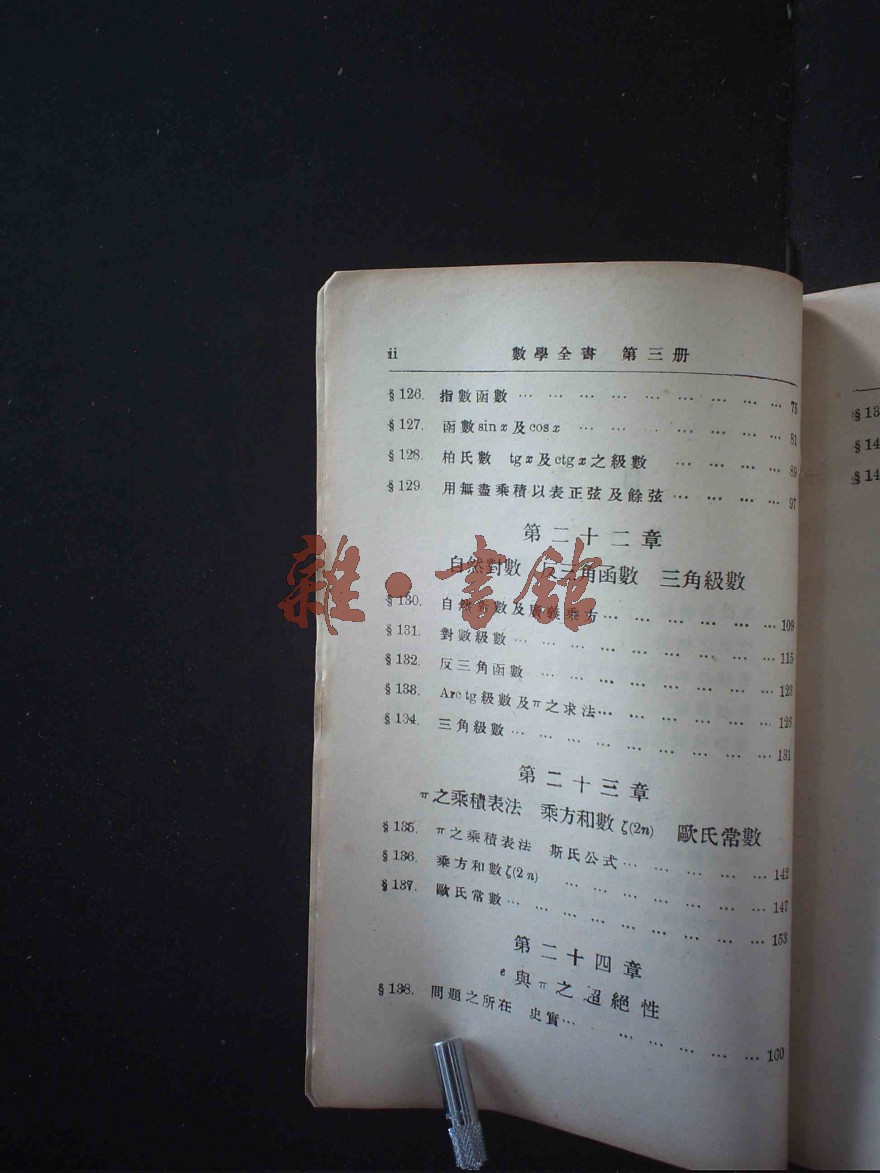 ii 數學全書 第三册
§126. 指數函數 … … … … … … … … … 75
§127. 函數 sin x 及 cos x … … … … … … … 81
§128. 柏氏數 tg x 及 ctg x 之級數 … … … … 89
§129. 用無盡乘積以表正弦及餘弦 … … … … 97
第二十二章
自然對數 反三角函數 三角級數
§130. 自然對數及廣義乘方 … … … … … … 109
§131. 對數級數 … … … … … … … … … 115
§132. 反三角函數 … … … … … … … … 123
§133. Arc tg 級數及π之求法 … … … … … … 126
§134. 三角級數 … … … … … … … … … 131
第二十三章
π之乘積表法 乘方和數 ζ(2n) 歐氏常數
§135. π之乘積表法 斯氏公式 … … … … … 142
§136. 乘方和數 ζ(2n) … … … … … … … 147
§137. 歐氏常數 … … … … … … … … … 153
第二十四章
e 與 π 之超絕性
§138. 問題之所在 史實 … … … … … … … 160
§13
§14
§14
雜·書館